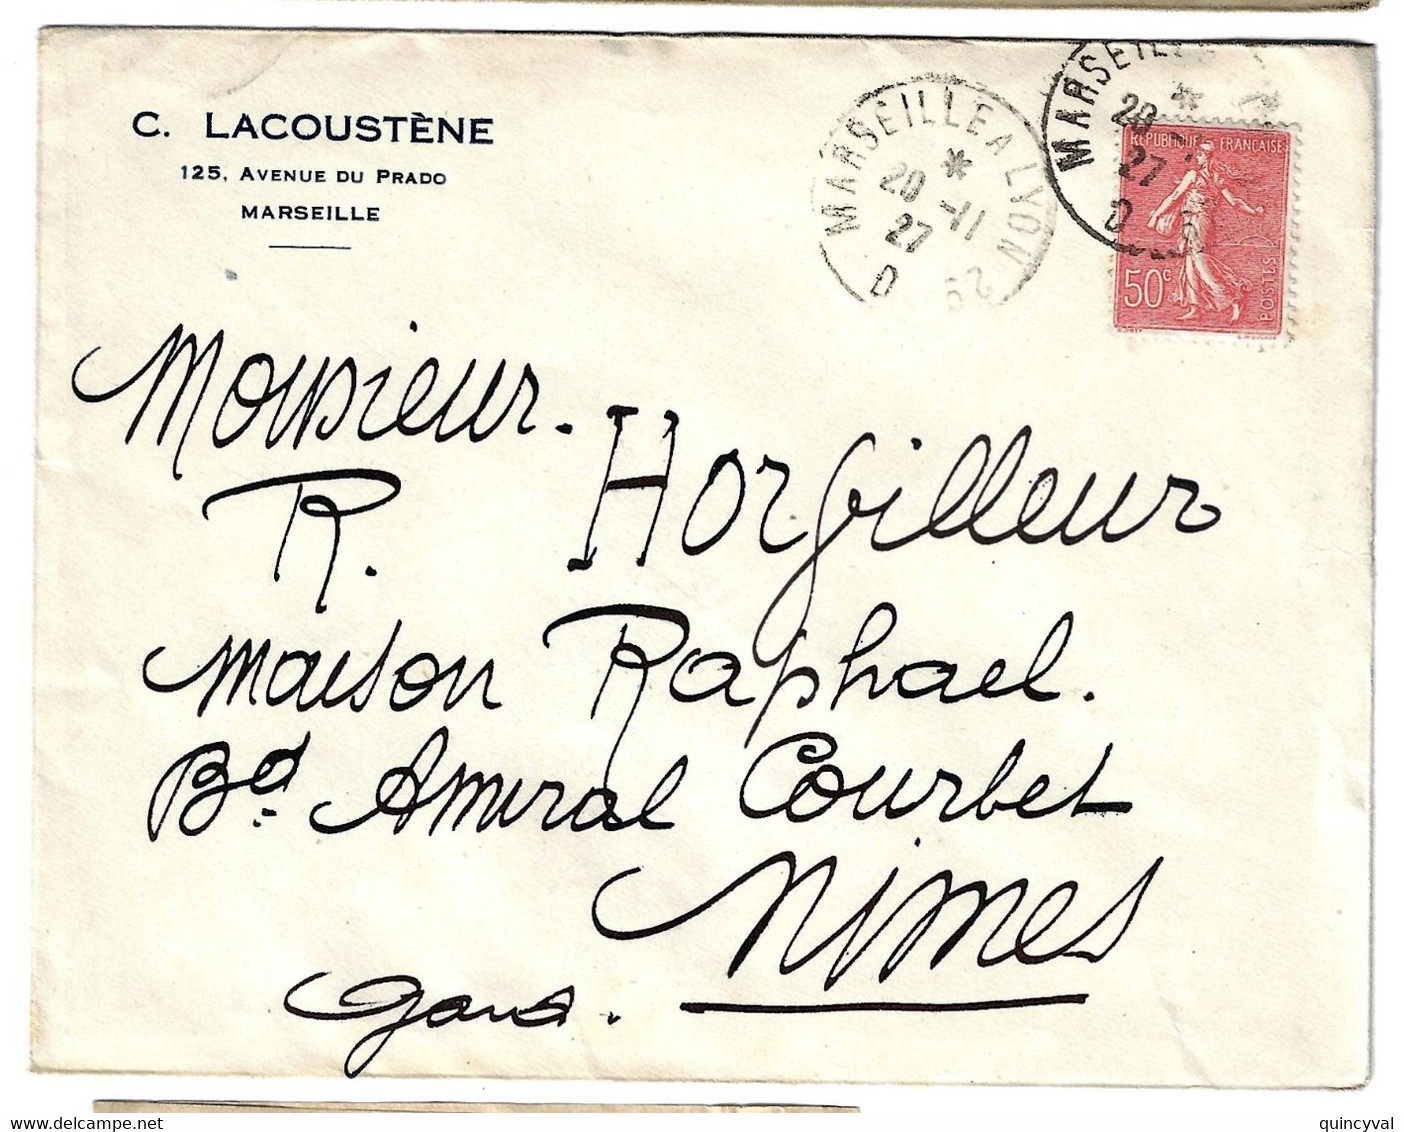 C. LACOUSTÈNE
125, AVENUE DU PRADO
MARSEILLE
MARSEILLE A LYON
20 -11
27
D
MARSEILLE
20
27
D
REPUBLIQUE FRANÇAISE
50c
POSTES
Monsieur.
R. Horgilleur
Maison Raphael.
Bd. Amiral Courbet
Nimes
Gard.
quincyval